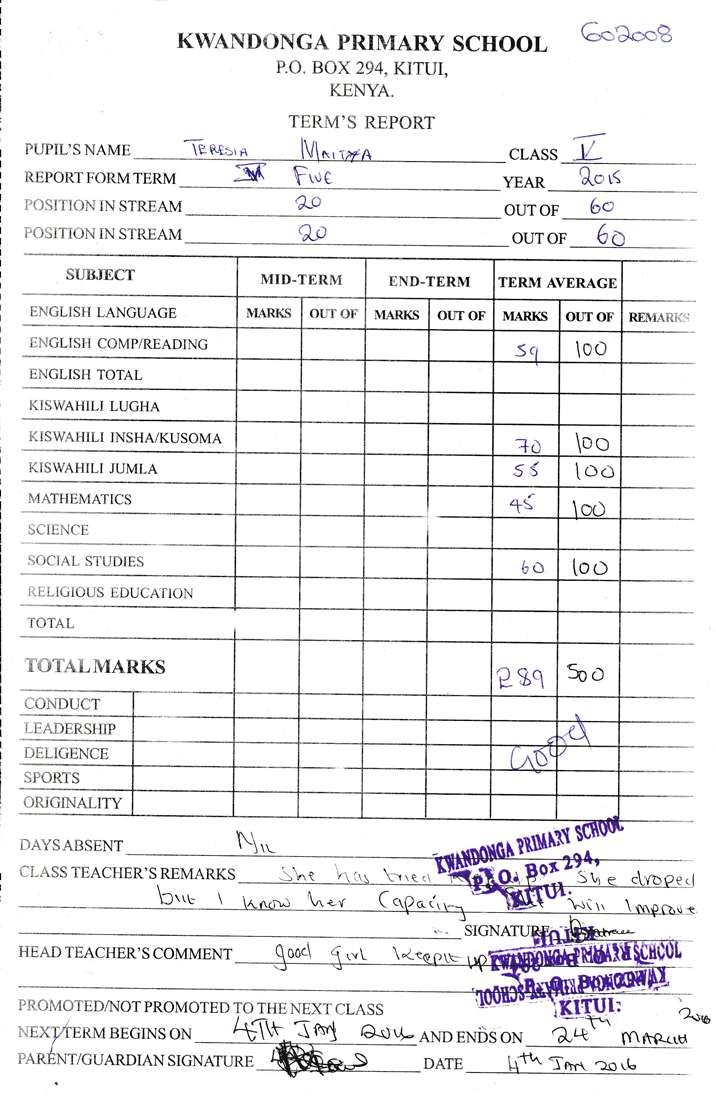 602008
KWANDONGA PRIMARY SCHOOL
P.O. BOX 294, KITUI,
KENYA.
TERM'S REPORT
PUPIL'S NAME TERESIA CLASS V
REPORT FORM TERM FIVE YEAR 2015
POSITION IN STREAM 20 OUT OF 60
POSITION IN STREAM 20 OUT OF 60
SUBJECT MID-TERM END-TERM TERM AVERAGE
ENGLISH LANGUAGE MARKS OUT OF MARKS OUT OF MARKS OUT OF REMARKS
ENGLISH COMP/READING 59 100
ENGLISH TOTAL
KISWAHILI LUGHA
KISWAHILI INSHA/KUSOMA 70 100
KISWAHILI JUMLA 55 100
MATHEMATICS 45 100
SCIENCE
SOCIAL STUDIES 60 100
RELIGIOUS EDUCATION
TOTAL
TOTAL MARKS 289 500
CONDUCT
LEADERSHIP
DELIGENCE Good
SPORTS
ORIGINALITY
DAYS ABSENT Nil
KWANDONGA PRIMARY SCHOOL
P. O. Box 294,
KITUI.
CLASS TEACHER'S REMARKS She has tried She droped
but I know her Capacity Will Improve
SIGNATURE
HEAD TEACHER'S COMMENT good girl keepit up
KWANDONGA PRIMARY SCHOOL
KITUI:
PROMOTED/NOT PROMOTED TO THE NEXT CLASS
NEXT TERM BEGINS ON 4TH JAN 2016 AND ENDS ON 24th MARCH 2016
PARENT/GUARDIAN SIGNATURE DATE 4th JAN 2016